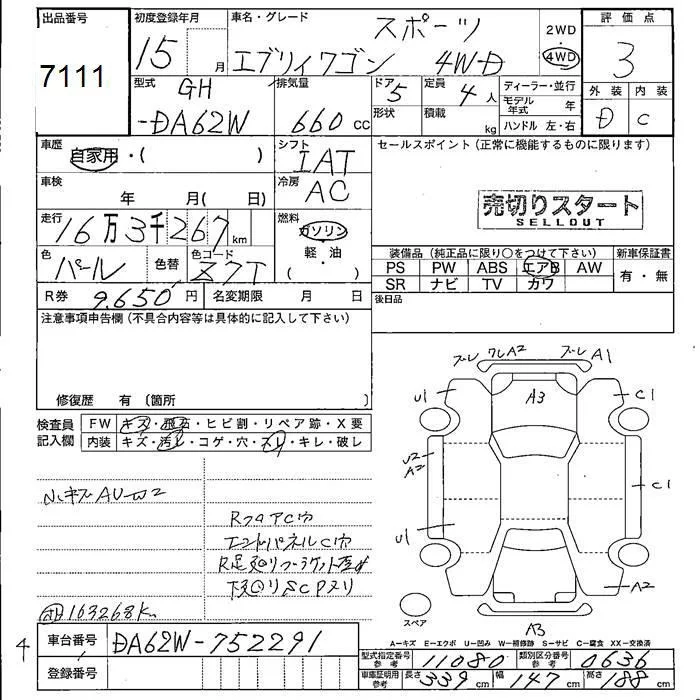 出品番号
7111
初度登録年月
15 月
車名・グレード
スポーツ
エブリィワゴン 4W-D
2WD
・
4WD
評価点
3
外装 内装
D C
型式
GH
-DA62W
排気量
660 cc
ドア 5
形状
定員 4 人
積載 kg
ディーラー・並行
モデル年式 年
ハンドル 左・右
車歴
自家用・( )
シフト
IAT
車検
年 月( 日)
冷房
AC
セールスポイント (正常に機能するものに限ります)
売切りスタート
SELLOUT
走行
16万3千267km
燃料
ガソリン
軽・油
( )
色
パール
色替
色コード
Z7T
装備品 (純正品に限り○をつけて下さい)
PS PW ABS エアB AW
SR ナビ TV カワ
新車保証書
有・無
R券 9,650円
名変期限 月 日
後日品
注意事項申告欄 (不具合内容等は具体的に記入して下さい)
修復歴 有 〔箇所 〕
検査員記入欄
FW キズ・飛石・ヒビ割・リペア跡・X要
内装 キズ・汚レ・コゲ・穴・スレ・キレ・破レ
RフロアC穴
エンドパネルC穴
163268K
4
車台番号 DA62W-752291
登録番号
A1
A3
U1
C1
U2
A2
C1
U1
A2
A3
スペア
A=キズ E=エクボ U=凹み W=補修跡 S=サビ C=腐食 XX=交換済
型式指定番号 参考 11080
類別区分番号 参考 0636
車庫証明用 参考 長さ 339 cm 幅 147 cm 高さ 188 cm